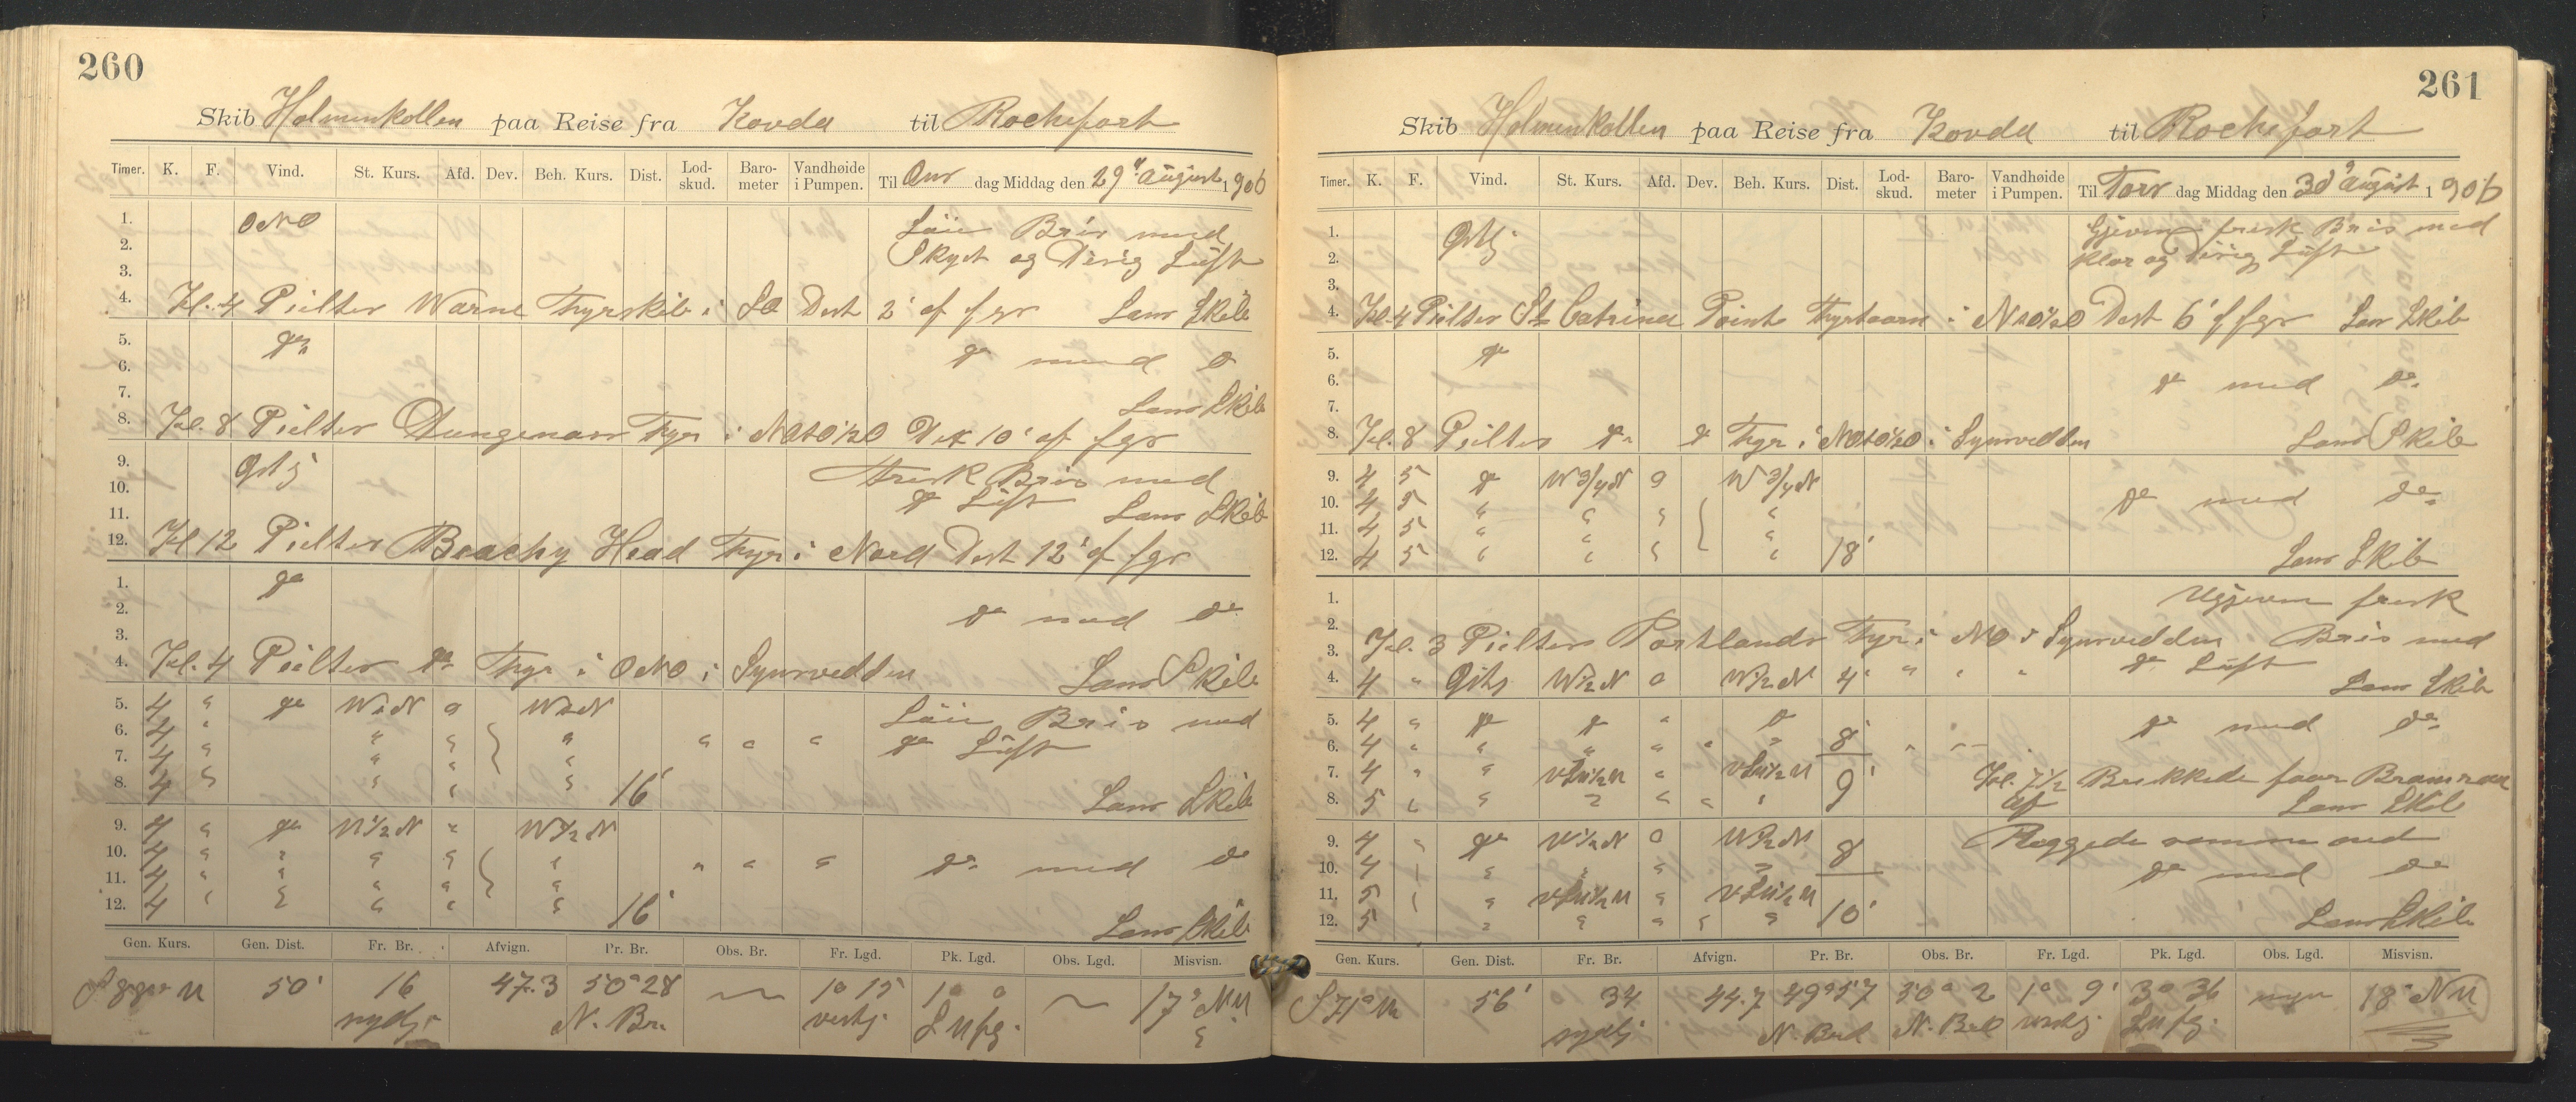 260
Skib Holmenkollen paa Reise fra Kovda til Rochefort
Timer. K. F. Vind. St. Kurs. Afd. Dev. Beh. Kurs. Dist. Lod-skud. Baro-meter Vandhøide i Pumpen. Til Ons dag Middag den 29 August 1906
1. ONO Løi Bris med
2. Skyet og Disig Luft
3.
4. Kl. 4 Peiltes Warne Fyrskib i SO Dist 2' af fgr Lens Skib
5. do
6. do med do
7. Lens Skib
8. Kl. 8 Peiltes Dungenass Fyr i NOtO½O Dist 10' af fgr
9. Østlj Frisk Bris med
10. do Luft
11. Lens Skib
12. Kl 12 Peiltes Beachy Head Fyr i Nord Dist 12' af fgr
1. do
2. do med do
3.
4. Kl. 4 Peiltes do Fyr i ONO i Synsvidden Lens Skib
5. 4 " do WtN 0 WtN Løi Bris med
6. 4 " " " " " " " do Luft
7. 4 " " " "
8. 4 " " " " 16' Lens Skib
9. 4 " do W½N " W½N
10. 4 " " " " " " " " do med do
11. 4 " " " " "
12. 4 " " " " " 16' Lens Skib
Gen. Kurs. Gen. Dist. Fr. Br. Afvign. Pr. Br. Obs. Br. Fr. Lgd. Pk. Lgd. Obs. Lgd. Misvisn.
50' 16 47.3 50°28 1° 15 1° 0 17° NW
sydlj N. Br. vestlj
261
Skib Holmenkollen paa Reise fra Kovda til Rochefort
Timer. K. F. Vind. St. Kurs. Afd. Dev. Beh. Kurs. Dist. Lod-skud. Baro-meter Vandhøide i Pumpen. Til Tors dag Middag den 30 August 1906
1. Østlj Gjevn frisk Bris med
2. Klar og Disig Luft
3.
4. Kl. 4 Peiltes St Catrina Point Fyrtaarn i Dist 6' af fgr Lens Skib
5. do
6. do med do
7.
8. Kl. 8 Peiltes do do Fyr i NOtO½O i Synsvidden Lens Skib
9. 4 5 do W¾N 0 W¾N
10. 4 5 " " " " do med do
11. 4 5 " " " "
12. 4 5 " " " " 18' Lens Skib
1. Ugjevn frisk
2.
3. Kl. 3 Peiltes Portlands Fyr i NO i Synsvidden Bris med
4. 4 " Østlj W½N 0 W½N 4' " " " do Luft Lens Skib
5. 4 " do do " do do med do
6. 4 " " " " " " 8' " "
7. 4 " " " Kl. 7½
8. 5 " " " " " " 9' af Lens Skib
9. 4 " do W½N 0 W½N
10. 4 " " " " " 8' do med do
11. 5 " " "
12. 5 " " " " " 10' Lens Skib
Gen. Kurs. Gen. Dist. Fr. Br. Afvign. Pr. Br. Obs. Br. Fr. Lgd. Pk. Lgd. Obs. Lgd. Misvisn.
S 71° W 56' 34 44.7 49°57 50° 2 1° 9' 3° 36 18° NW
sydlj N. Bred N. Bred vestlj